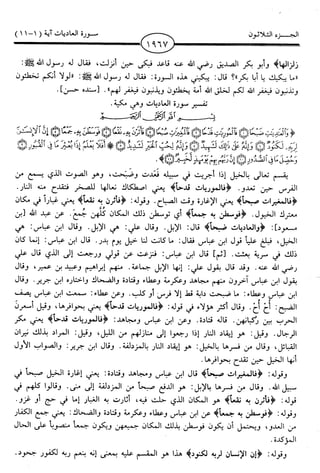 الجـــزء الثلاثـــون
سورة العاديات آية (١-١١)
١٩٦٧
زلزالها﴾ وأبو بكر الصديق رضي الله عنه قاعد فبكى حين أنزلت، فقال له رسول الله ﷺ:
«ما يبكيك يا أبا بكر؟» قال: يبكيني هذه السورة. فقال له رسول الله ﷺ: «لولا أنكم تخطئون
وتذنبون فيغفر الله لكم لخلق الله أمة يخطئون ويذنبون فيغفر لهم». [سنده حسن].
تفسير سورة العاديات وهي مكية.
يقسم تعالى بالخيل إذا أجريت في سبيله فعدت وضبحت، وهو الصوت الذي يسمع من
الفرس حين تعدو. ﴿فالموريات قدحاً﴾ يعني اصطكاك نعالها للصخر فتقدح منه النار.
﴿فالمغيرات صبحاً﴾ يعني الإغارة وقت الصباح. وقوله: ﴿فأثرن به نقعاً﴾ يعني غباراً في مكان
معترك الخيول. ﴿فوسطن به جمعاً﴾ أي توسطن ذلك المكان كلهن جُمع. عن عبد الله [بن
مسعود]: ﴿والعاديات ضبحاً﴾ قال: الإبل. وقال علي: هي الإبل. وقال ابن عباس: هي
الخيل، فبلغ علياً قول ابن عباس فقال: ما كانت لنا خيل يوم بدر. قال ابن عباس: إنما كان
ذلك في سرية بعثت. [ثم] قال ابن عباس: فنزعت عن قولي ورجعت إلى الذي قال علي
رضي الله عنه. وقد قال بقول علي: إنها الإبل جماعة. منهم إبراهيم وعبيد بن عمير، وقال
بقول ابن عباس آخرون منهم مجاهد وعكرمة وعطاء وقتادة والضحاك واختاره ابن جرير. وقال
ابن عباس وعطاء: ما ضبحت دابة قط إلا فرس أو كلب. وعن عطاء: سمعت ابن عباس يصف
الضبح: أحْ أحْ. وقال أكثر هؤلاء في قوله: ﴿فالموريات قدحاً﴾ يعني بحوافرها، وقيل أسعرن
الحرب بين ركبانهن. قاله قتادة. وعن ابن عباس ومجاهد: ﴿فالموريات قدحاً﴾ يعني مكر
الرجال. وقيل: هو إيقاد النار إذا رجعوا إلى منازلهم من الليل، وقيل: المراد بذلك نيران
القبائل، وقال من فسرها بالخيل: هو إيقاد النار بالمزدلفة. وقال ابن جرير: والصواب الأول
أنها الخيل حين تقدح بحوافرها.
وقوله: ﴿فالمغيرات صبحاً﴾ قال ابن عباس ومجاهد وقتادة: يعني إغارة الخيل صبحاً في
سبيل الله. وقال من فسرها بالإبل: هو الدفع صبحاً من المزدلفة إلى منى. وقالوا كلهم في
قوله: ﴿فأثرن به نقعاً﴾ هو المكان الذي حلت فيه، أثارت به الغبار إما في حج أو غزو.
وقوله: ﴿فوسطن به جمعاً﴾ عن ابن عباس وعطاء وعكرمة وقتادة والضحاك: يعني جمع الكفار
من العدو، ويحتمل أن يكون فوسطن بذلك المكان جميعهن ويكون جمعاً منصوباً على الحال
المؤكدة.
وقوله: ﴿إن الإنسان لربه لكنود﴾ هذا هو المقسم عليه بمعنى إنه بنعم ربه لكفور جحود.